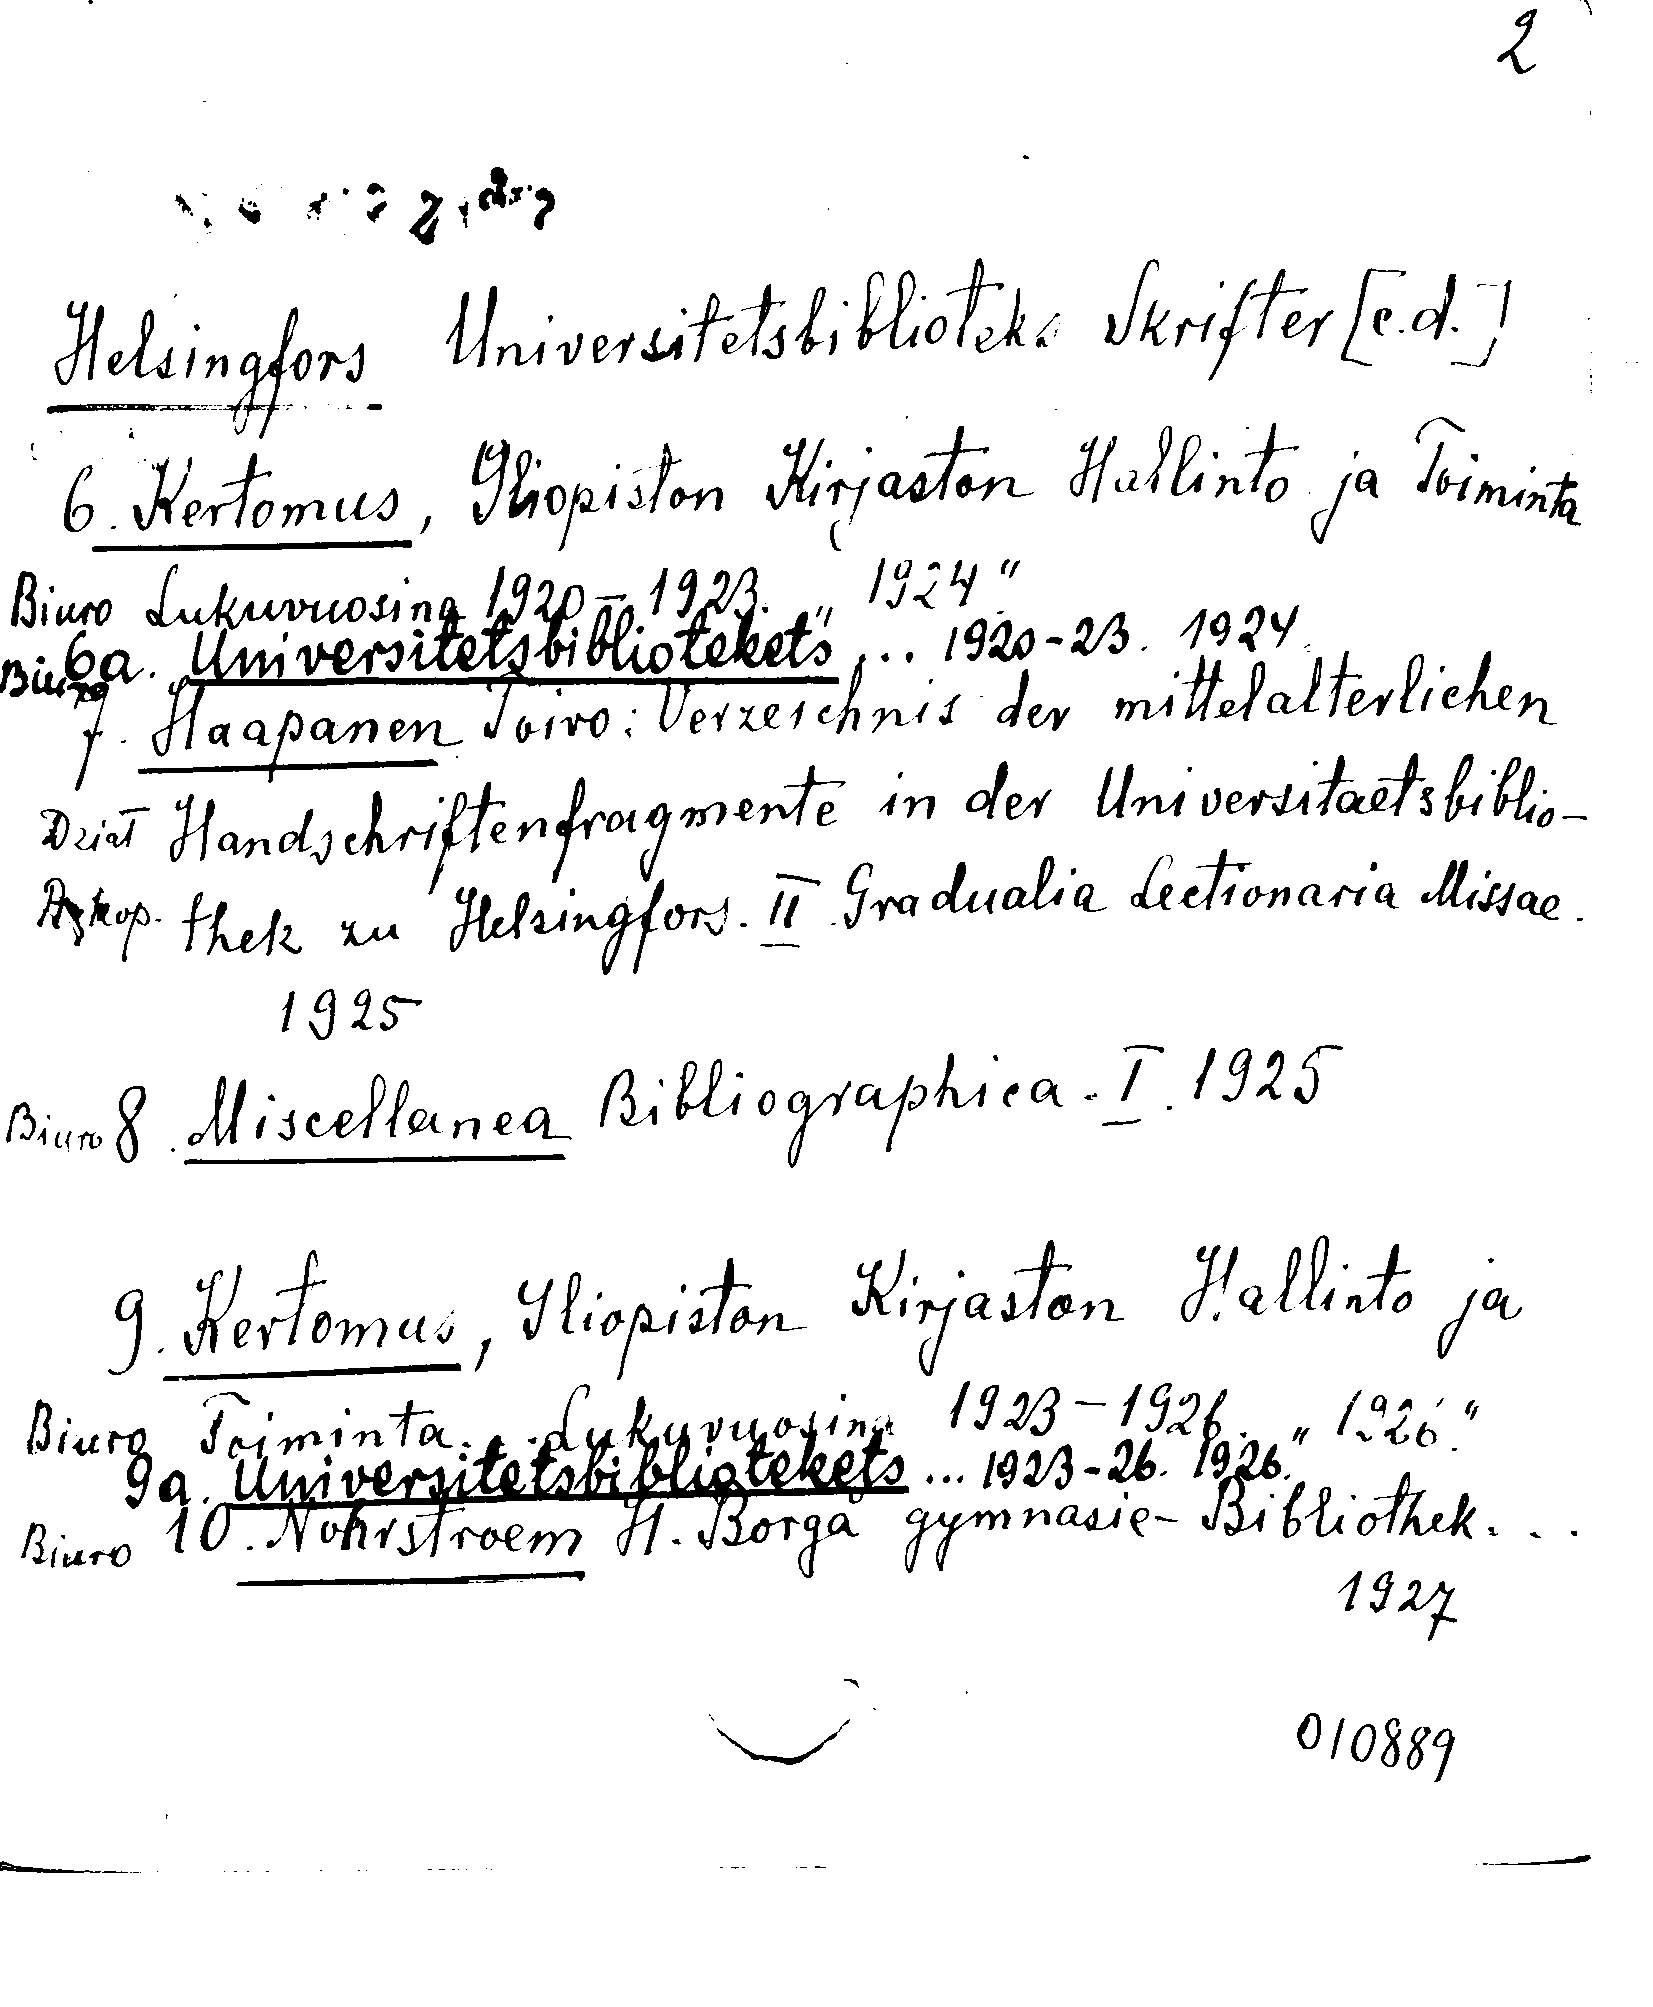 2
Helsingfors Universitetsbiblioteks Skrifter [c.d.]
6. Kertomus, Yliopiston Kirjaston Hallinto ja Toiminta
Biuro Lukuvuosina 1920–1923. „ 1924"
Biuro 6a. Universitetsbibliotekets ... 1920-23. 1924.
7. Haapanen Toivo: Verzeichnis der mittelalterlichen
Dział Handschriftenfragmente in der Universitaetsbiblio-
Rękop. thek zu Helsingfors. II Gradualia Lectionaria Missae.
1925
Biuro 8. Miscellanea Bibliographica. I. 1925
9. Kertomus, Yliopiston Kirjaston Hallinto ja
Biuro Toiminta. Lukuvuosina 1923–1926. „ 1926."
9a. Universitetsbibliotekets ... 1923-26. 1926.
Biuro 10. Nohrstroem H. Borgå gymnasie-Bibliothek...
1927
010889